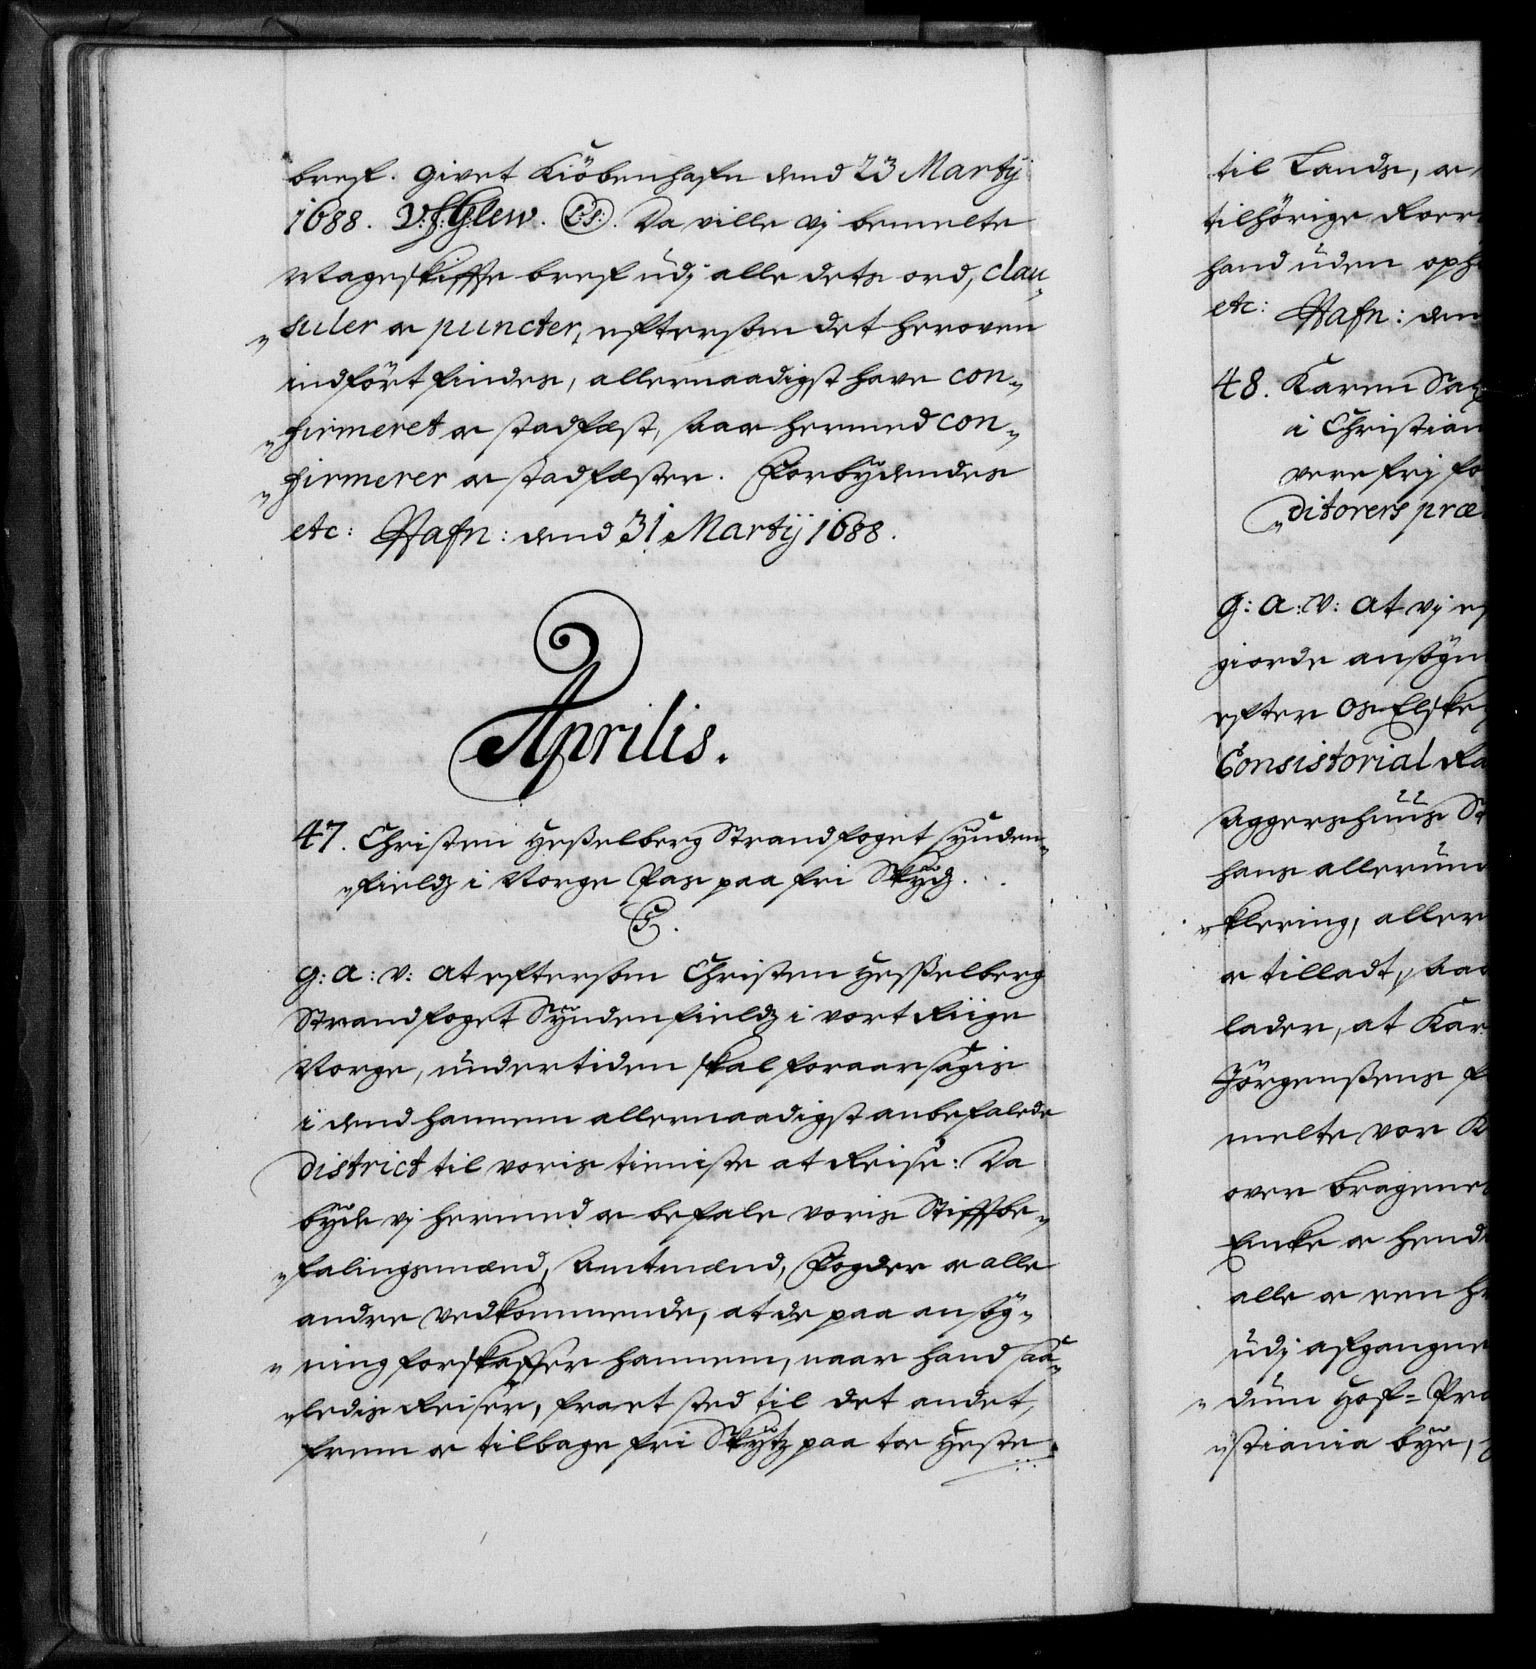 bref. givet Kiöbenhafn dend 23 Martij
1688. V: f: Glew. L:S:. Da ville vj bemelte
Mageskiffte bref udj alle dets ord, clau¬
suler oc puncter, eftersom det heroven
indfört findes, allernaadigst have con¬
firmeret oc stadfæst, saa oc hermed con¬
firmerer oc stadfæster. Forbydendes
etc: Hafn: dend 31 Martij 1688.
Aprilis.
47. Christen Heßelberg Strandfoget synden¬
fieldz i Norge Pas paa fri Skydz.
C5.
g: a: v: at eftersom Christen Heßelberg
Strandfoget Syndenfieldz i vort Riige
Norge, undertiden skal foraarsagis
i dend hannem allernaadigst anbefalede
District til voris tienniste at Reise: Da
byde vj hermed oc befale voris Stiffbe¬
falingsmænd, Amtmænd, Fogder oc alle
andre vedkommende, at de paa ansög¬
ning forskaffer hannem, naar hand saa¬
ledis Reiser, fra et sted til det andet,
frem oc tilbage fri Skydtz paa toe Heste
til Lands, oc
tilhörige Roer
hand uden oph
etc: Hafn: den
48. Karen Sax
i Christian
vere frj fo
ditorers præ
g: a: v: at vj ef
giorde ansögn
efter os Elske
Consistorial Ra
Aggershuus St
hans allerund
klering, aller
oc tilladt, saa
lader, at Kar
Jörgenßens f
melte vor K
over Bragenes
Encke oc hend
alle oc een h
udj afgangne
dum Hof-Pro
stiania bye,